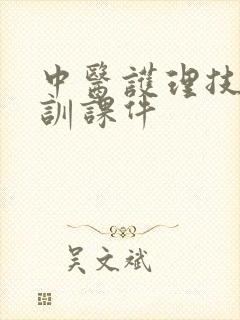 中醫護理技
訓課件
吴文斌